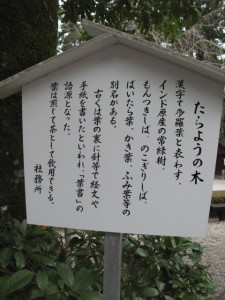 たらようの木
漢字で多羅葉と表わす。
インド原産の常緑樹。
もんつきしば、のこぎりしば、
ばいたら葉、かき葉、ふみ葉等の
別名がある。
古くは葉の裏に針等で経文や
手紙を書いたといわれ「葉書」の
語源となった。
葉は煎して茶として飲用できる。
社務所